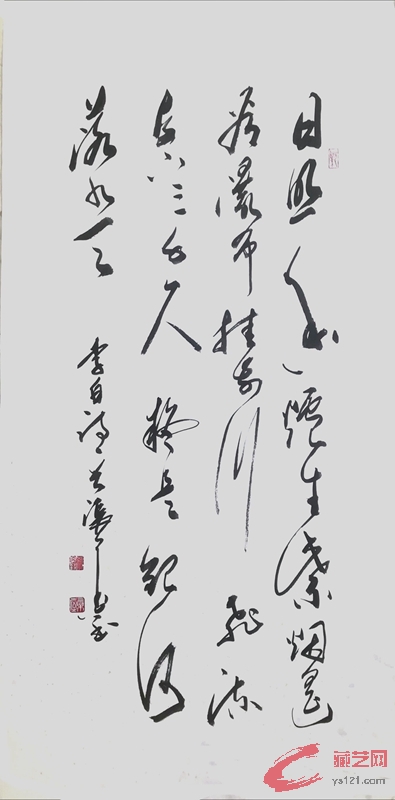 日照香爐生紫烟遥
看瀑布挂前川飛流
直下三千尺疑是銀河
落九天
李白诗
藏艺网
ys121.com